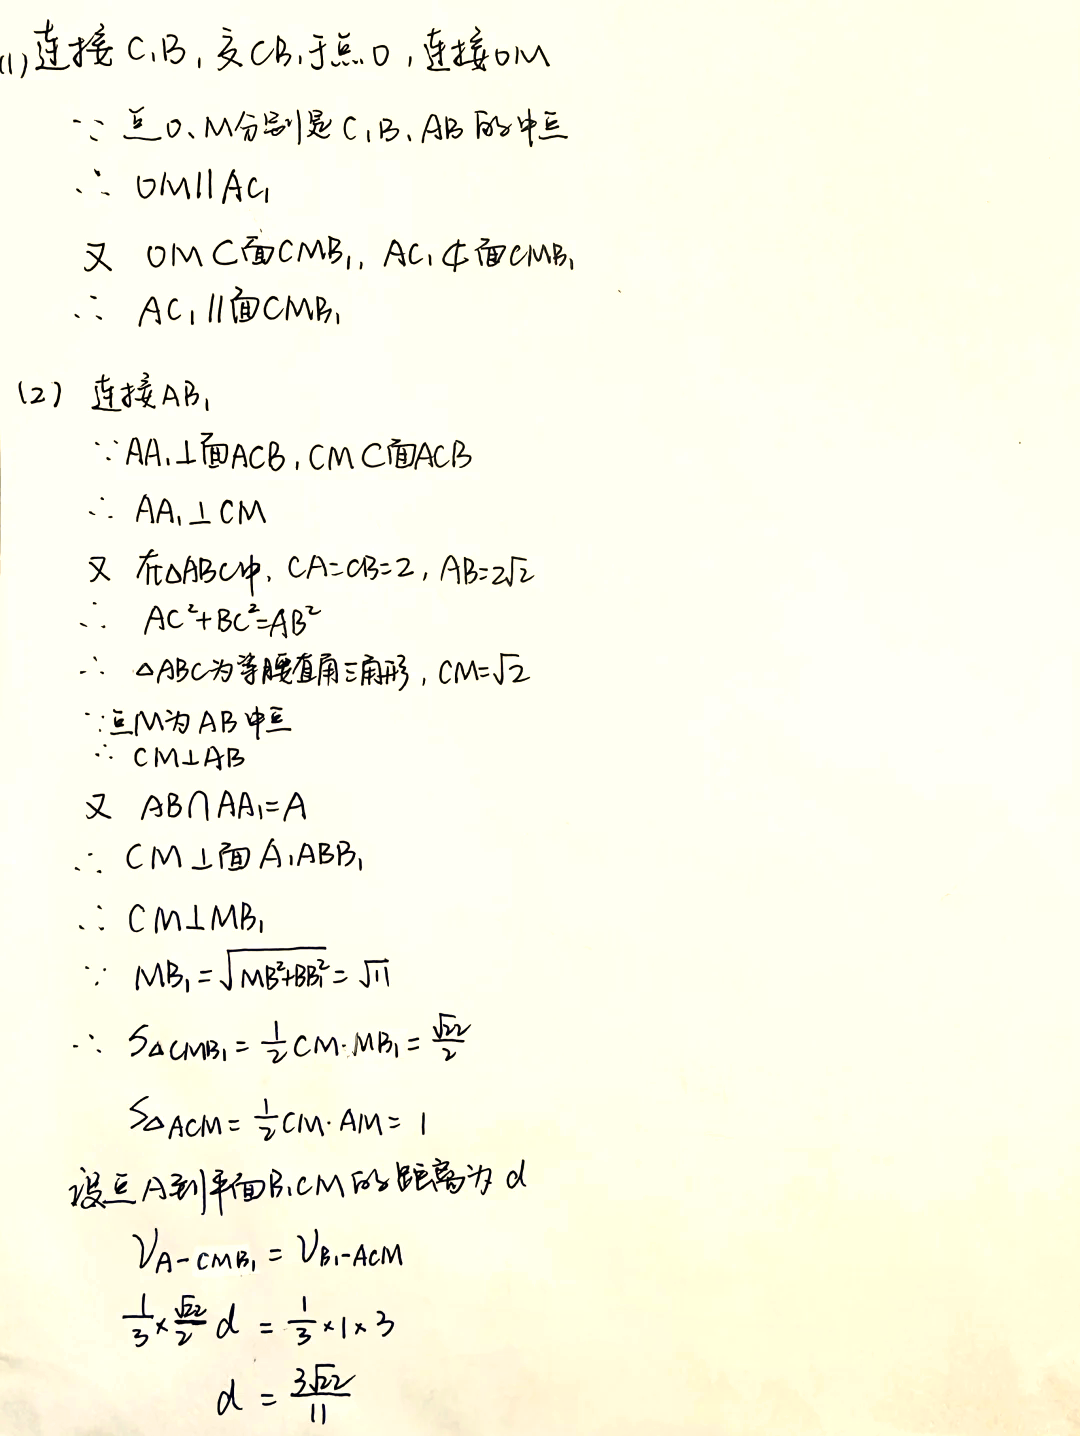 (1) 连接C₁B, 交CB₁于点O, 连接OM
∵ 点O、M分别是C₁B、AB的中点
∴ OM∥AC₁
又 OM⊂面CMB₁, AC₁⊄面CMB₁
∴ AC₁∥面CMB₁
(2) 连接AB₁
∵AA₁⊥面ACB, CM⊂面ACB
∴ AA₁⊥CM
又 在△ABC中, CA=CB=2, AB=2√2
∴ AC²+BC²=AB²
∴ △ABC为等腰直角三角形, CM=√2
∵点M为AB中点
∴ CM⊥AB
又 AB∩AA₁=A
∴ CM⊥面A₁ABB₁
∴ CM⊥MB₁
∵ MB₁=√(MB²+BB₁²)=√11
∴ S△CMB₁=1/2CM·MB₁=√22/2
S△ACM=1/2CM·AM=1
设点A到平面B₁CM的距离为d
V_A-CMB₁=V_B₁-ACM
1/3×√22/2 d=1/3×1×3
d=3√22/11